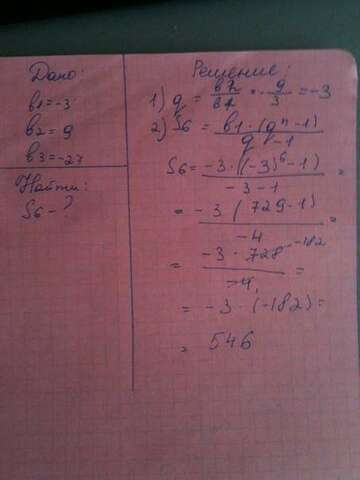 Дано:
b1=-3
b2=9
b3=-27
Найти:
S6-?
Решение:
1) q = b2/b1 = -9/3 = -3
2) S6 = b1·(qⁿ-1)/q-1
S6 = -3·((-3)⁶-1)/-3-1 =
= -3(729-1)/-4 =
= -3·728 -182/-4 =
= -3·(-182) =
= 546